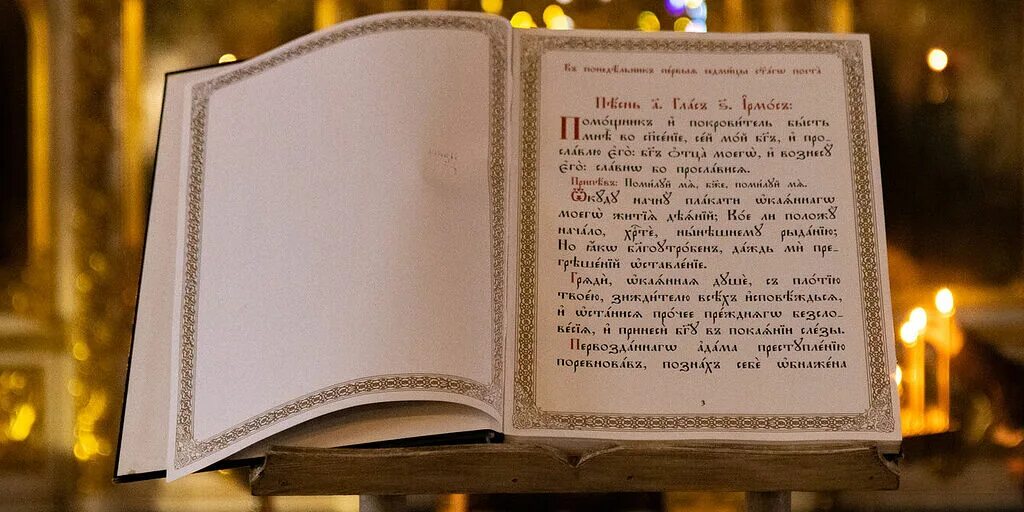 Въ понедѣльникъ пе́рвыѧ седми́цы ст҃а́гѡ поста̀
Пѣ́снь а҃. Гла́съ ѕ҃. І҆рмо́съ:
Помо́щникъ и҆ покрови́тель бы́сть
мнѣ̀ во сп҃се́нїе, се́й мо́й бг҃ъ, и҆ про-
сла́влю є҆го̀: бг҃ъ ѻ҆тца̀ моегѡ̀, и҆ вознесꙋ̀
є҆го̀: сла́внѡ бо просла́висѧ.
Припѣ́въ: Поми́лꙋй мѧ̀, бж҃е, поми́лꙋй мѧ̀.
Ѿкꙋ́дꙋ начнꙋ̀ пла́кати ѡ҆каѧ́ннагѡ
моегѡ̀ житїѧ̀ дѣѧ́нїй; Ко́е ли положꙋ̀
нача́ло, хрⷭ҇тѐ, ны́нѣшнемꙋ рыда́нїю;
Но ꙗ҆́кѡ бл҃гоꙋтро́бенъ, да́ждь мѝ пре-
грѣше́нїй ѡ҆ставле́нїе.
Грѧдѝ, ѡ҆каѧ́ннаѧ дꙋшѐ, съ пло́тїю
твое́ю, зижди́телю всѣ́хъ и҆сповѣ́ждьсѧ,
и҆ ѡ҆ста́нисѧ про́чее пре́жднѧгѡ безсло-
ве́сїѧ, и҆ принесѝ бг҃ꙋ въ покаѧ́нїи сле́зы.
Первозда́ннагѡ а҆да́ма престꙋпле́нїю
поревнова́въ, позна́хъ себѐ ѡ҆бнаже́на
3